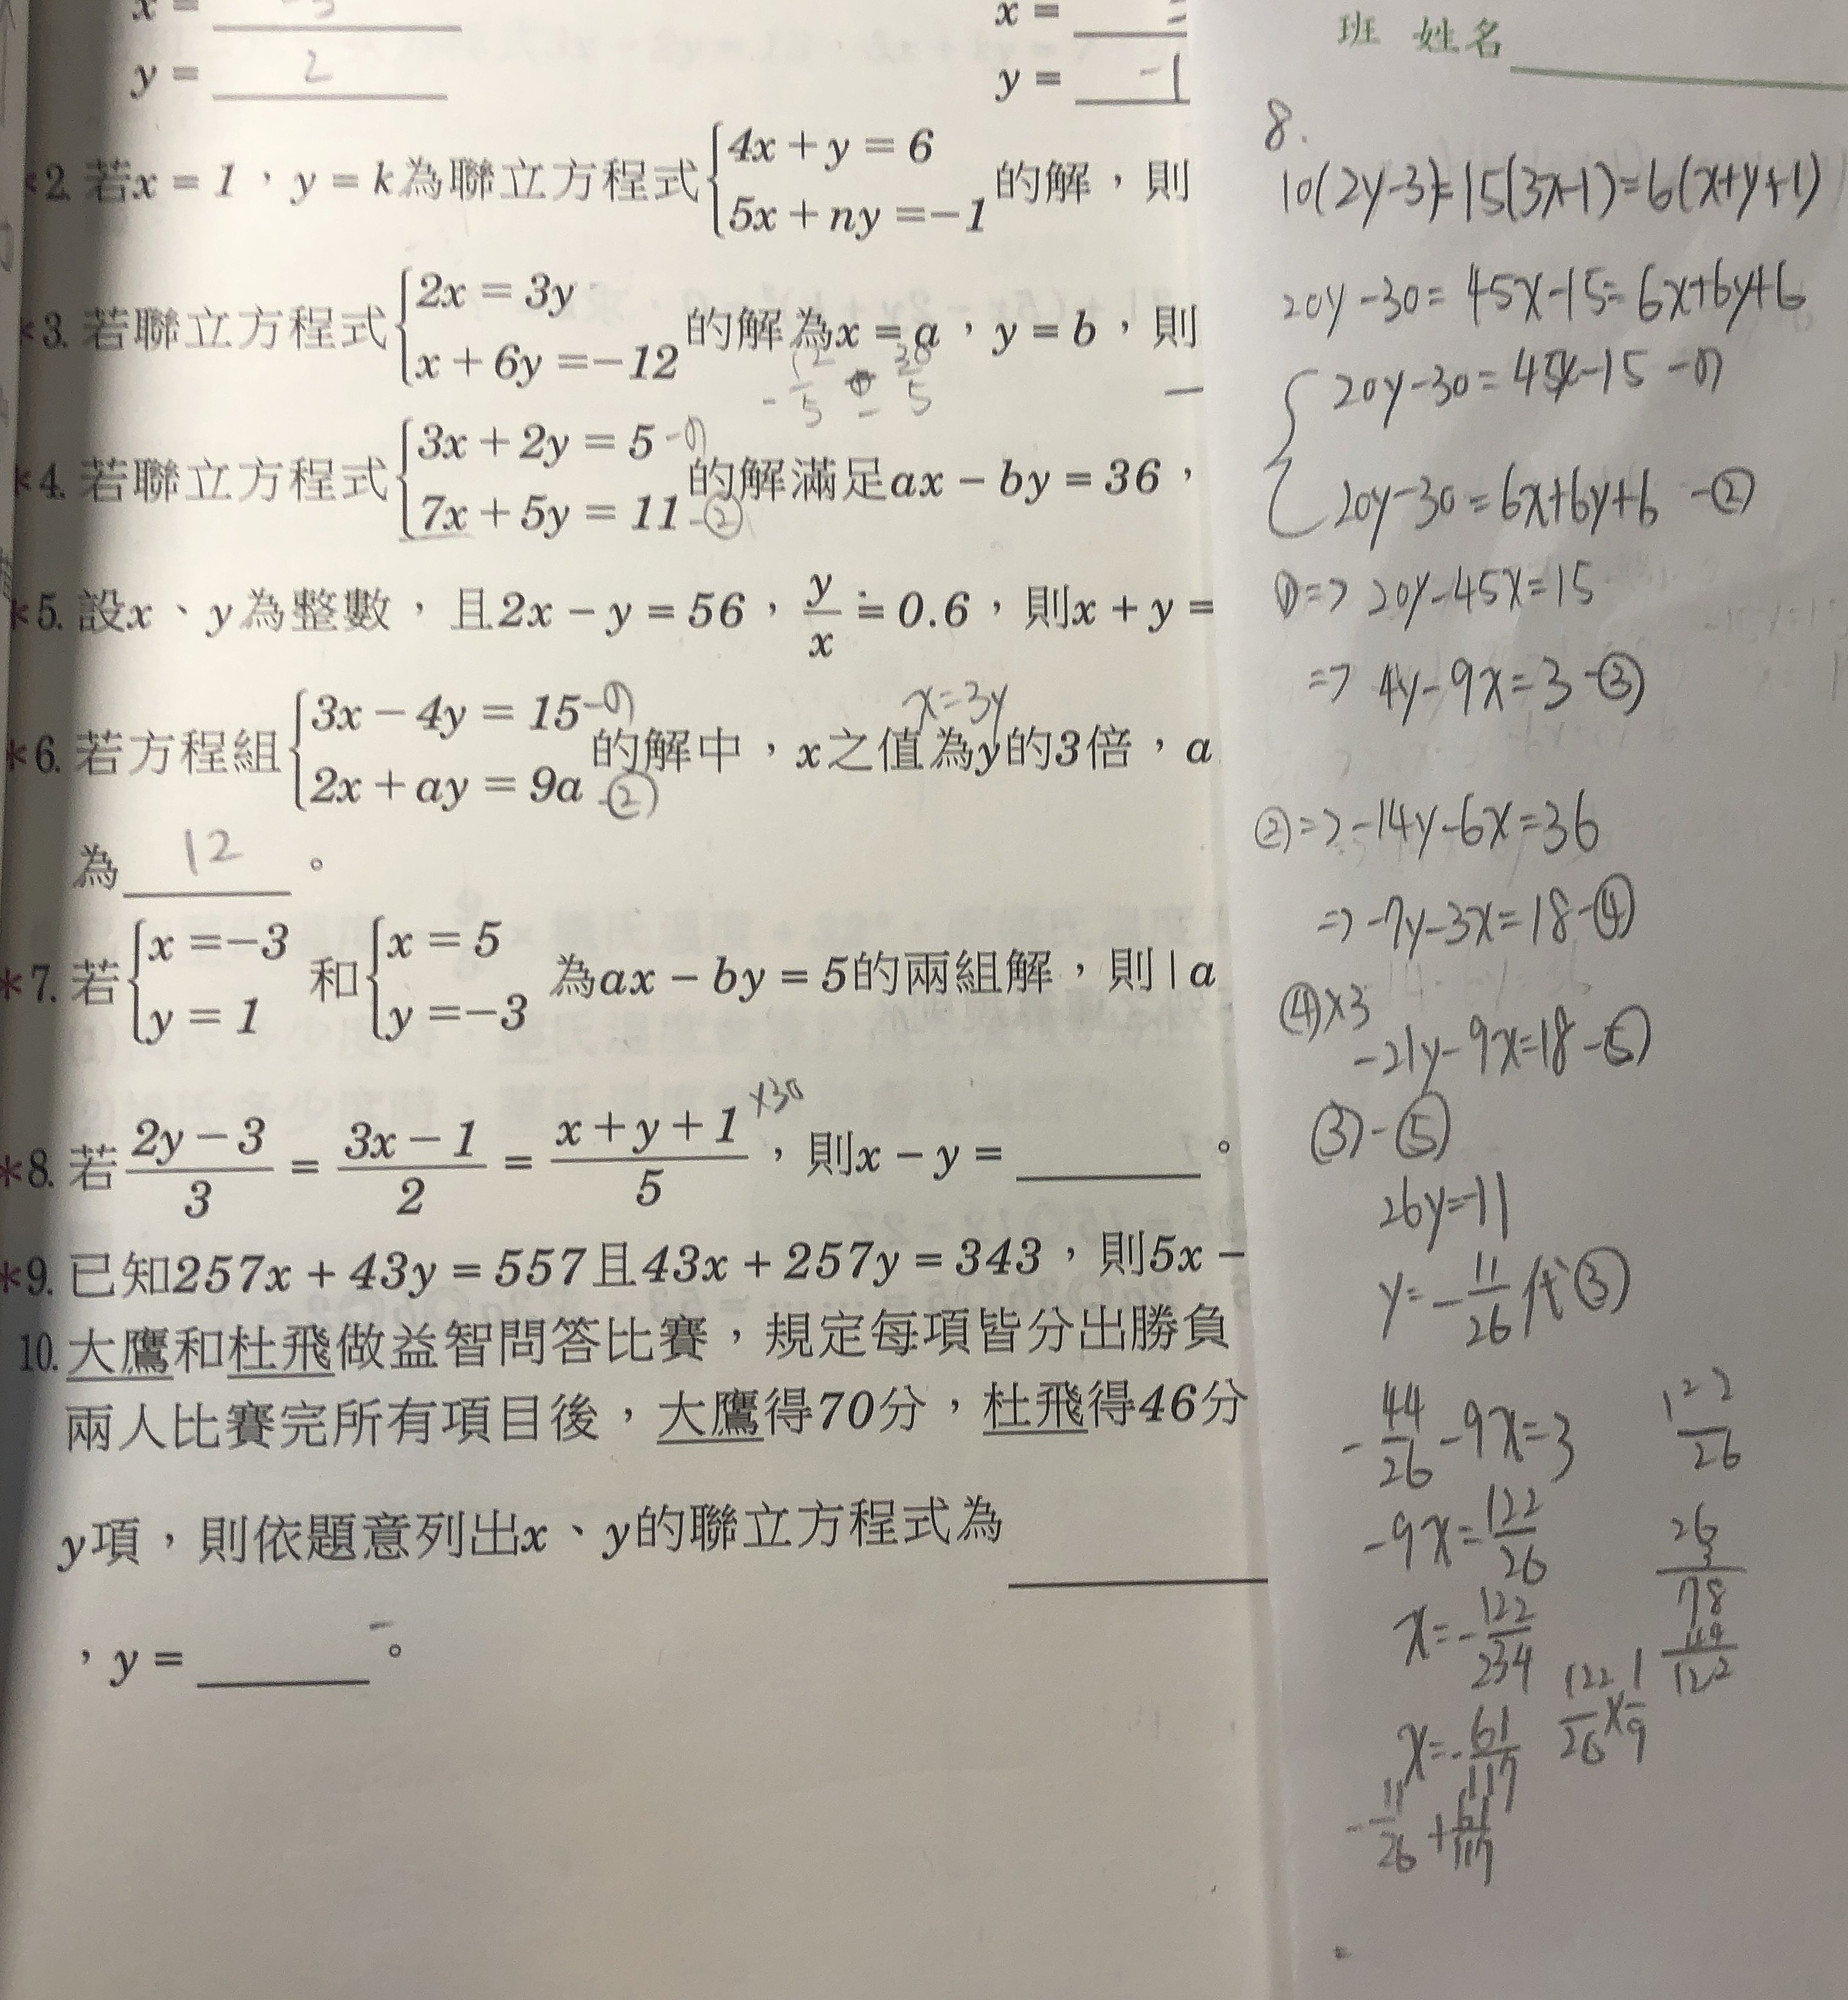 x = -3
y = 2
x =
y = -1
*2. 若x = 1，y = k為聯立方程式{4x + y = 6
5x + ny = -1 的解，則
*3. 若聯立方程式{2x = 3y
x + 6y = -12 的解為x = a，y = b，則
*4. 若聯立方程式{3x + 2y = 5 -①
7x + 5y = 11 -② 的解滿足ax - by = 36，
*5. 設x、y為整數，且2x - y = 56，y/x ≒ 0.6，則x + y =
x=3y
*6. 若方程組{3x - 4y = 15 -①
2x + ay = 9a -② 的解中，x之值為y的3倍，a
為 12 。
*7. 若{x = -3
y = 1 和{x = 5
y = -3 為ax - by = 5的兩組解，則|a
*8. 若(2y - 3)/3 = (3x - 1)/2 = (x + y + 1)/5 ×30，則x - y = ______。
*9. 已知257x + 43y = 557且43x + 257y = 343，則5x -
10. 大鷹和杜飛做益智問答比賽，規定每項皆分出勝負
兩人比賽完所有項目後，大鷹得70分，杜飛得46分
y項，則依題意列出x、y的聯立方程式為
，y = ______。
班 姓名
8.
10(2y-3)=15(3x-1)=6(x+y+1)
20y-30=45x-15=6x+6y+6
{20y-30=45x-15 -①
20y-30=6x+6y+6 -②
①=> 20y-45x=15
=> 4y-9x=3 -③
②=> -14y-6x=36
=> -7y-3x=18 -④
④×3
-21y-9x=18 -⑤
③-⑤
26y=-11
y=-11/26 代③
-44/26-9x=3
-9x=122/26
x=-122/234
x=-61/117
-11/26+61/117
122/26
26
3
78
44
122
122/26×1/9